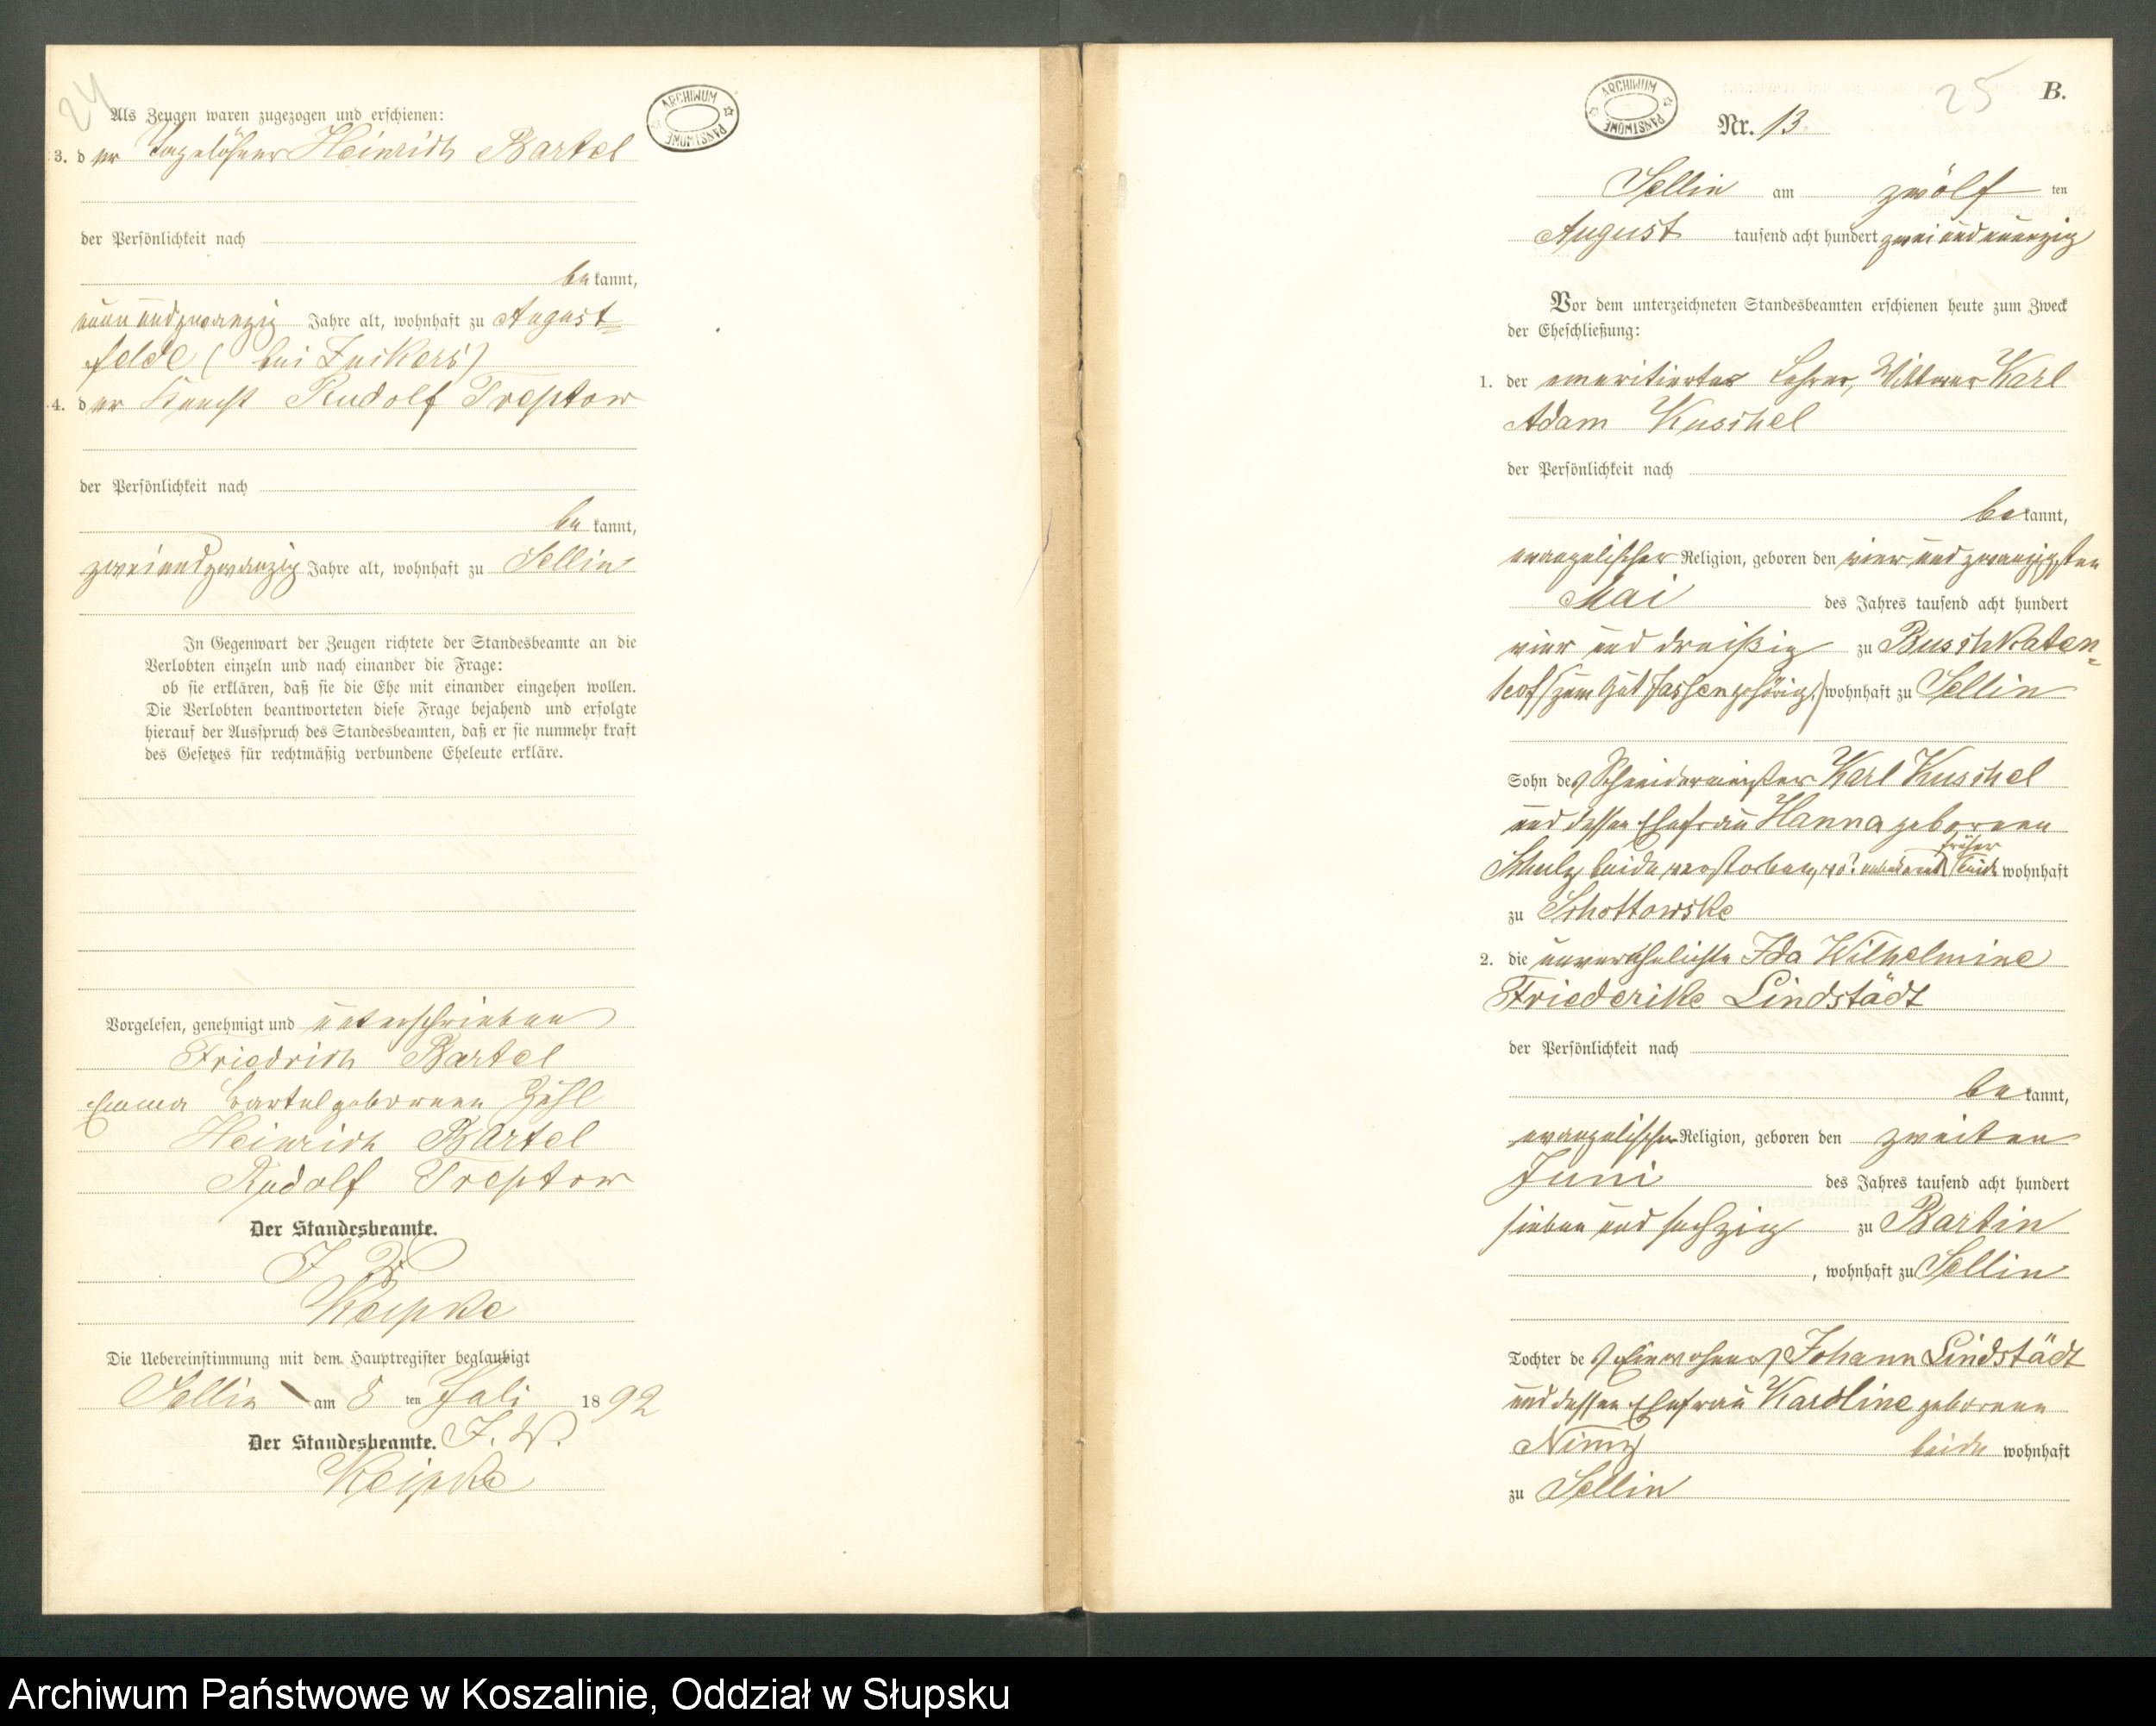 24
Als Zeugen waren zugezogen und erschienen:
3. der Tagelöhner Heinrich Bartel
der Persönlichkeit nach
bekannt,
neun und zwanzig Jahre alt, wohnhaft zu August=
felde (bei Zuckers)
4. der Knecht Rudolf Treptow
der Persönlichkeit nach
bekannt,
zwei und zwanzig Jahre alt, wohnhaft zu Sellin
In Gegenwart der Zeugen richtete der Standesbeamte an die
Verlobten einzeln und nach einander die Frage:
ob sie erklären, daß sie die Ehe mit einander eingehen wollen.
Die Verlobten beantworteten diese Frage bejahend und erfolgte
hierauf der Ausspruch des Standesbeamten, daß er sie nunmehr kraft
des Gesetzes für rechtmäßig verbundene Eheleute erkläre.
Vorgelesen, genehmigt und unterschrieben
Friedrich Bartel
Emma Bartel geborene
Heinrich Bartel
Rudolf Treptow
Der Standesbeamte.
J. V.
Keipke
Die Uebereinstimmung mit dem Hauptregister beglaubigt
Sellin am 8 ten Juli 1892
Der Standesbeamte. J. V.
Keipke
ARCHIWUM PAŃSTWOWE
ARCHIWUM PAŃSTWOWE
25
B.
Nr. 13.
Sellin am zwölf ten
August tausend acht hundert zwei und neunzig
Vor dem unterzeichneten Standesbeamten erschienen heute zum Zweck
der Eheschließung:
1. der emeritierter Lehrer, Wittwer Karl
Adam Kuschel
der Persönlichkeit nach
bekannt,
evangelischer Religion, geboren den vier und zwanzigsten
Mai des Jahres tausend acht hundert
vier und dreißig zu Buschkaten=
hof (zum Gut Jassen gehörig,) wohnhaft zu Sellin
Sohn des Schneidermeister Karl Kuschel
und dessen Ehefrau Hanna geborenen
früher
Schulz beide verstorben, wo? unbekannt beide wohnhaft
zu Schottowske
2. die unverehelichte Ida Wilhelmine
Friederike Lindstädt
der Persönlichkeit nach
bekannt,
evangelischer Religion, geboren den zweiten
Juni des Jahres tausend acht hundert
sieben und sechzig zu Bartin
, wohnhaft zu Sellin
Tochter des Einwohners Johann Lindstädt
und dessen Ehefrau Karoline geborenen
Nimz beide wohnhaft
zu Sellin
Archiwum Państwowe w Koszalinie, Oddział w Słupsku